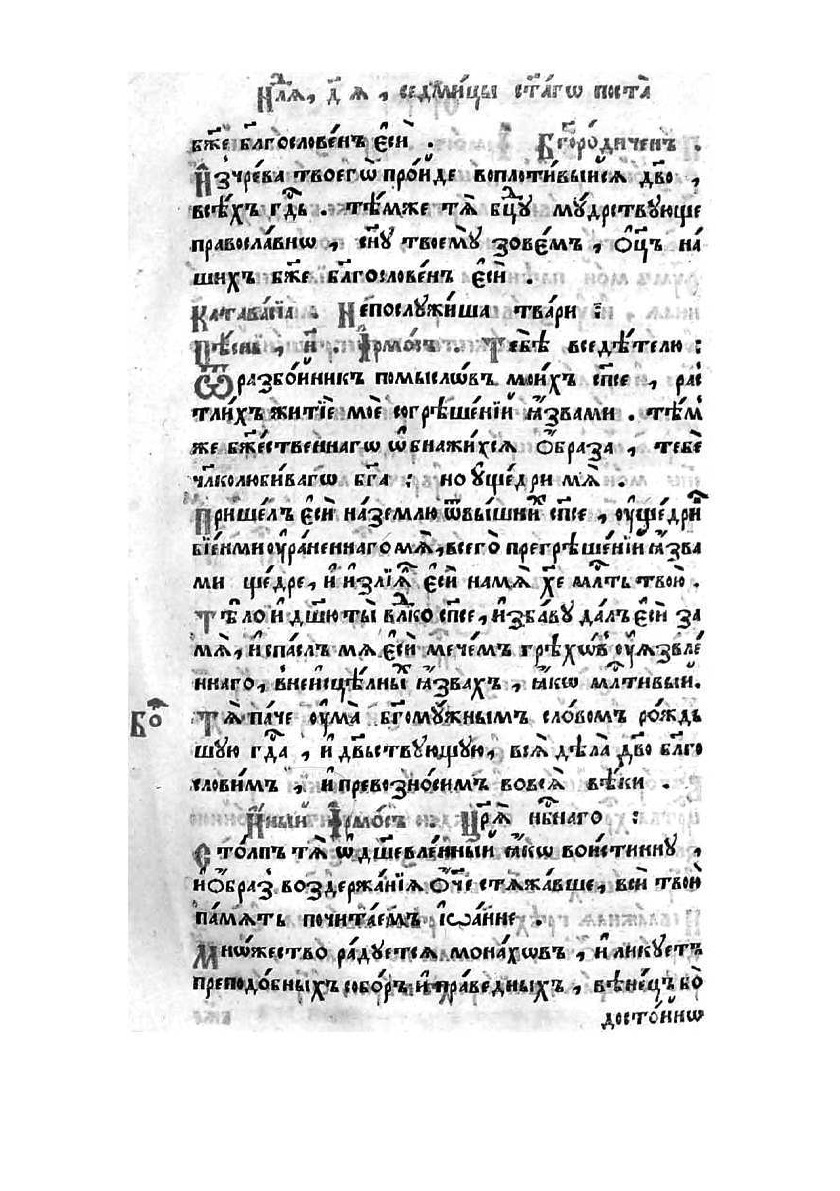 Нд҃лѧ, д҃ ѧ , седми́цы ст҃а́гѡ поста̀
бж҃е бл҃гослове́нъ є҆сѝ . Бг҃оро́диченъ .
И҆зчре́ва твоегѡ̀ про́йде воплоти́выйсѧ дв҃о ,
всѣ́хъ гд҃ь . тѣ́мже тѧ̀ бц҃у мꙋ́дрствꙋюще
правосла́внѡ , сн҃ꙋ твоемꙋ̀ зове́мъ , ѻ҆ц҃ъ на́
шихъ бж҃е бл҃гослове́нъ є҆сѝ .
Катава́сїа . Непослꙋ́жиша тва́ри :
Пѣ́снь , и҃ . І҆рмо́съ . Тебѣ̀ вседѣ́телю :
Ѿразбо́йникъ по́мыслѡвъ мои́хъ сп҃се , рас
тли́хъ житїѐ моѐ согрѣше́нїй ꙗ҆́звами . тѣ́м
же бж҃е́ственнагѡ ѡ҆бнажи́хсѧ ѻ҆́браза , тебѐ
чл҃колюби́вагѡ бг҃а ; но ᲂу҆ще́дри мѧ̀ .
Прише́лъ є҆сѝ на́землю ѿвы́шнихъ сп҃се , ᲂу҆ще́дрит
бїе́ньми ᲂу҆ра́неннаго мѧ̀, всегѐ прегрѣше́нїй ꙗ҆́зва
ми ще́дре, и҆ и҆злїѧ́лъ є҆сѝ на́мѧ хр҃е мл҃ть твою̀ .
Тѣ́ло и҆ дш҃ю ты̀ вл҃ко сп҃се , и҆зба́вꙋ да́лъ є҆сѝ за
мѧ̀, и҆ спа́слъ мѧ̀ є҆сѝ мече́мъ грѣхѡ́въ ᲂу҆ѧзвле́
ннаго, внеисцѣ́льныхъ ꙗ҆́звахъ , ꙗ҆́кѡ мл҃тивый.
Бо҃
Тѧ̀ па́че ᲂу҆ма̀ бг҃омꙋ́жнымъ сло́вомъ ро́ждь
шꙋю гд҃а , и҆ дв҃ьствꙋющꙋю, всѧ̀ дѣла̀ дв҃о бл҃го
слови́мъ , и҆ превозно́симъ вовсѧ̀ вѣ́ки .
И҆́ный І҆рмо́съ . Цр҃ѧ̀ нб҃наго :
Сто́лпъ тѧ̀ ѡ҆дш҃евле́нный ꙗ҆́кѡ вои́стиннꙋ ,
и҆ ѻ҆́браз воздержа́нїѧ ѻ҆́ч҃е стѧжа́вше, всѝ твою̀
па́мѧть почита́емъ і҆ѡа́нне .
Мно́жество ра́дꙋетсѧ мона́хѡвъ , и҆ ликꙋ́етъ
преподо́бныхъ собо́ръ и҆ пра́ведныхъ , вѣне́цъ бо̀
досто́йнѡ